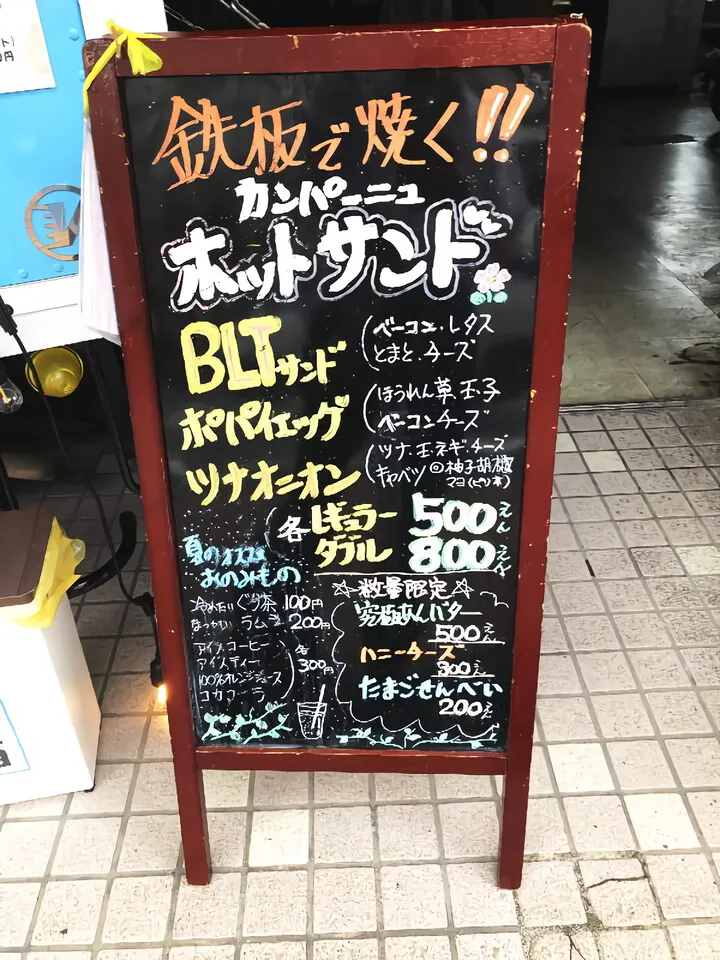 鉄板で焼く!!
カンパーニュ
ホットサンド
BLTサンド
(ベーコン・レタス
とまと、チーズ
ポパイエッグ
(ほうれん草、玉子
ベーコンチーズ
ツナオニオン
(ツナ、玉ネギ、チーズ
キャベツ 柚子胡椒
マヨ(ピリ辛)
各 レギュラー 500えん
ダブル 800えん
夏のオススメ
おのみもの
冷めたいぐり茶 100円
なつかしい ラムネ 200円
アイスコーヒー
アイスティー
100%オレンジジュース
コカコーラ
各
300円
☆数量限定☆
究極あんバター
500えん
ハニーチーズ
300えん
たまごせんべい
200えん